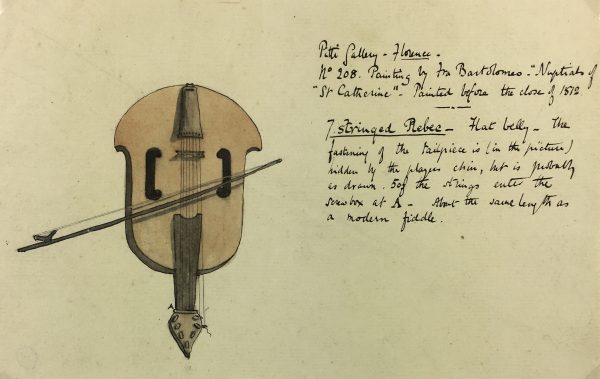 Pitti Gallery - Florence -
No 208. Painting by Fra Bartolomeo - "Nuptials of
"St Catherine" - Painted before the close of 1512
7. stringed Rebec - Flat belly - The
fastening of the tailpiece is (in the picture)
hidden by the players chin, but is probably
as drawn. 5 of the strings enter the
screwbox at A - About the same length as
a modern fiddle.
A